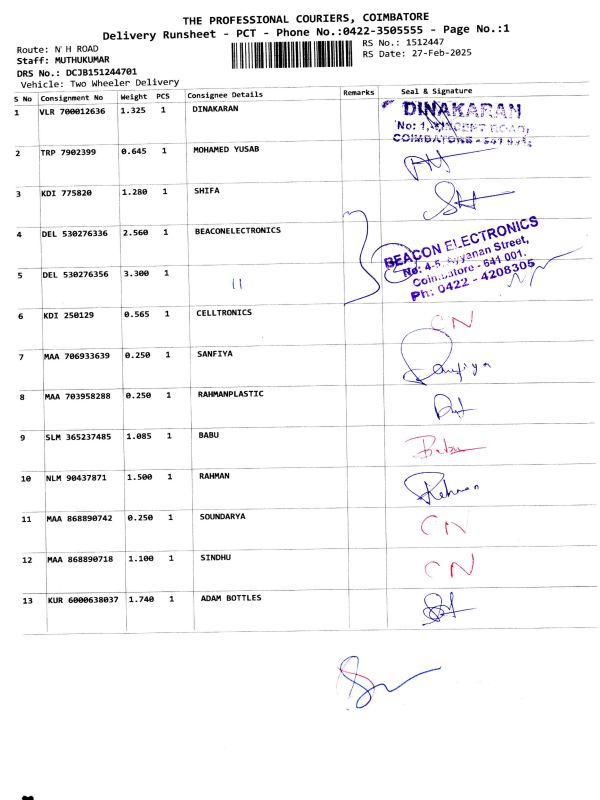 THE PROFESSIONAL COURIERS, COIMBATORE
Delivery Runsheet - PCT - Phone No.:0422-3505555 - Page No.:1
Route: N H ROAD
RS No.: 1512447
Staff: MUTHUKUMAR
RS Date: 27-Feb-2025
DRS No.: DCJB151244701
Vehicle: Two Wheeler Delivery
S No Consignment No Weight PCS Consignee Details Remarks Seal & Signature
1 VLR 700012636 1.325 1 DINAKARAN
DINAKARAN
No: 1, ROAD,
COIMBATORE - 641
2 TRP 7902399 0.645 1 MOHAMED YUSAB
3 KDI 775820 1.280 1 SHIFA
4 DEL 530276336 2.560 1 BEACONELECTRONICS
BEACON ELECTRONICS
No: 4-5, Ayyanan Street,
Coimbatore - 641 001.
Ph: 0422 - 4208305
5 DEL 530276356 3.300 1 11
6 KDI 250129 0.565 1 CELLTRONICS CN
7 MAA 706933639 0.250 1 SANFIYA Sanfiya
8 MAA 703958288 0.250 1 RAHMANPLASTIC
9 SLM 365237485 1.085 1 BABU Babu
10 NLM 90437871 1.500 1 RAHMAN Rehman
11 MAA 868890742 0.250 1 SOUNDARYA CN
12 MAA 868890718 1.100 1 SINDHU CN
13 KUR 6000638037 1.740 1 ADAM BOTTLES